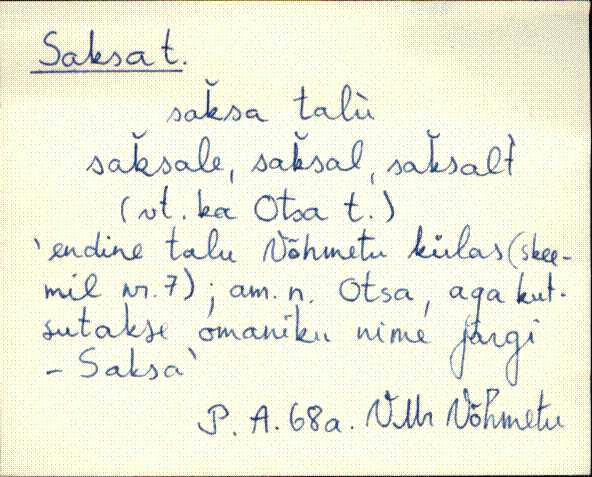 Saksa t.
sak̆sa talù
sak̆sale, sak̆sal, sak̆salt̀
(vt. ka Otsa t.)
'endine talu Võhmetu külas (skee-
mil nr. 7); am. n. Otsa, aga kut-
sutakse omaniku nime järgi
- Saksa'
P. A. 68a. VMr Võhmetu